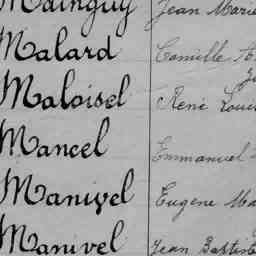 Mainguy Jean Marie
Malard Camille
Maloisel René Louis
Mancel Emmanuel
Manivel Eugene
Manivel Jean Baptist